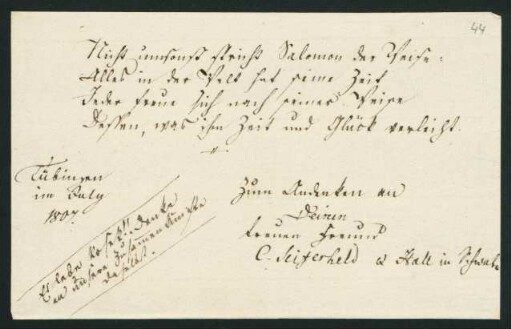 44
Nicht umsonst spricht Salomon der Weise:
Alles in der Welt hat seine Zeit
Jeder freue sich nach seiner Weise
Dessen, was ihm Zeit und Glück verleiht.
Tübingen
im July
1807.
Es lebe Denke
an unsere Zusammenkünfte
daselbst.
Zum Andenken an
Deinen
treuen Freund
C. Seiferheld a Hall in Schwab